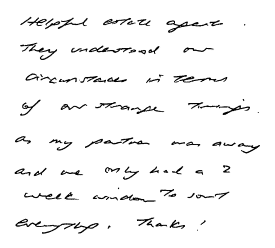 Helpful estate agent.
They understood our
circumstances in terms
of our strange timings.
as my partner was away
and we only had a 2
week window to sort
everything. Thanks!